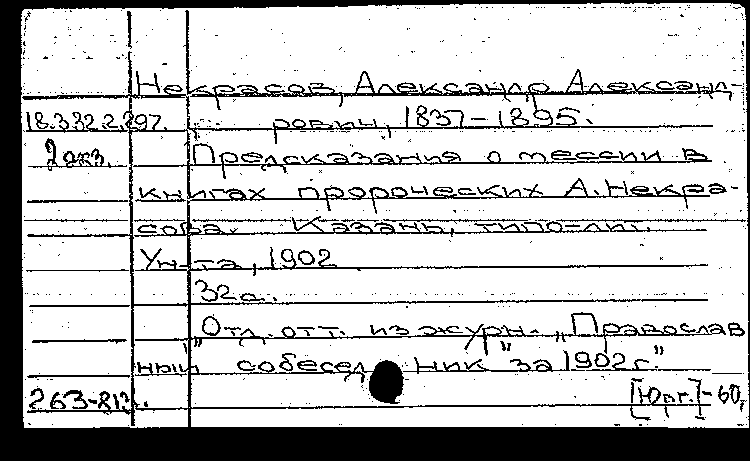 Некрасов, Александр Александ-
18.332.2.297. рович, 1837-1895.
2 экз. Предсказания о мессии в
книгах пророческих А. Некра-
сова. Казань, типо-лит.
Ун-та, 1902
32 с.
„Отд. отт. из журн. „Православ
ный собеседник" за 1902 г."
263-813.
[Юрг.]-60,